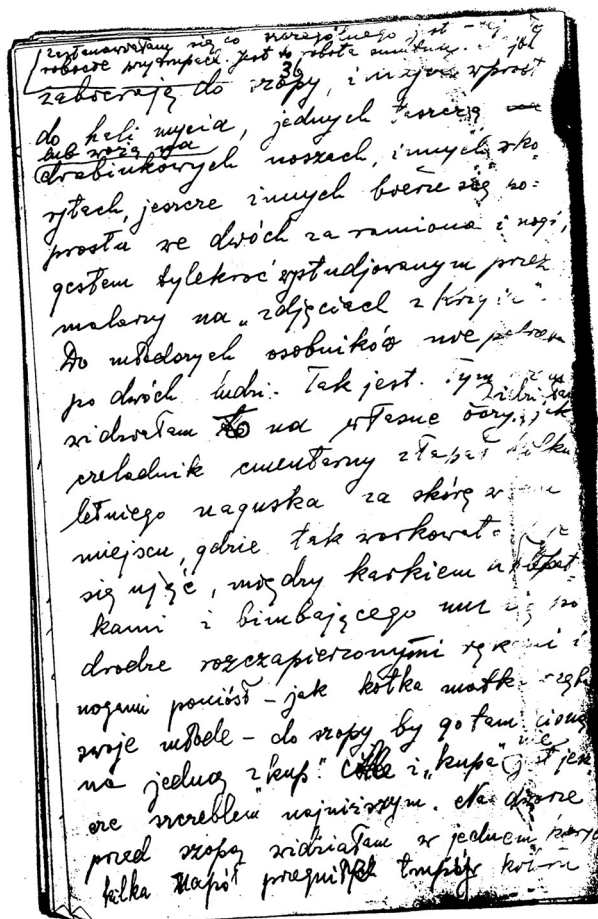 zastanawiałam się co szczególnego jest
robocze przy trupach. Jest to robota smutna. I jak
36
zabierają do szopy, innych wprost
do hali mycia, jednych taszczą
lub wożą na
drabinkowych noszach, innych w ko
rytach, jeszcze innych bierze się po=
prostu we dwóch za ramiona i nogi,
gestem tylekroć wystudjowanym przez
malarzy na „zdjęciach z krzyża".
Do młodszych osobników nie potrzeba
po dwóch ludzi. Tak jest. Tym razem
widziałam to na własne oczy, jak
czeladnik cmentarny złapał kilku
letniego naguska za skórę w tem
miejscu, gdzie tak workowato
się ująć, między karkiem a łopat
kami i bimbającego mu się po
drodze rozczapierzonymi rękami i
nogami poniósł – jak kotka matka
swoje młode – do szopy by go tam cisnąć
na jedną z „kup". i „kupa" jest jesz
cze szczeblem najniższym. Na dworze
przed szopą widziałam w jednem
kilka napół przegniłych trupów